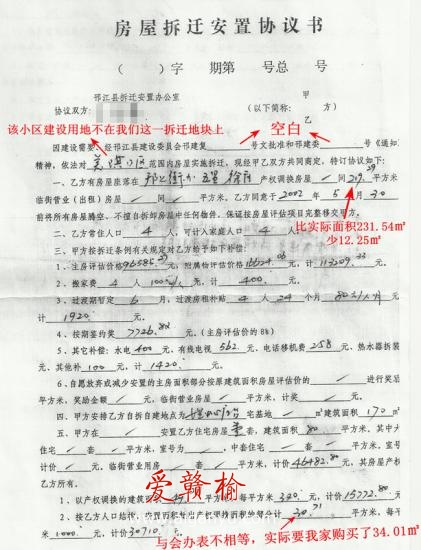 房屋拆迁安置协议书
（ ）字 期第 号总 号
邗江县拆迁安置办公室 甲
协议双方: （以下简称: 方）
乙
该小区建设用地不在我们这一拆迁地块上
空白
因建设需要、经邗江县建设委员会邗建复 号文批准和邗建委 号《通知》
精神，依法对 小区 范围内房屋实施拆迁，现经甲乙双方共同商定，特订协议如下:
一、乙方有房屋座落在 产权调换房屋 ／ 间 219.29 平方米
临街营业（出租）房屋 ／ 间 ／ 平方米，乙方同意于 2002 年 5 月 30
前将所有房屋腾空、不擅自拆卸房屋中任何物件、保证按房屋评估项目完整移交甲方。
比实际面积231.54㎡
少12.25㎡
二、乙方常住人口 4 人，可计入家庭人口 4 人
三、甲方按拆迁条例有关规定对乙方给予如下补偿:
1．主房评估价格 96585.27 元，附属物评估价格 16624.06 元，计 113209.33 元
2．搬家费 4 人 100元/人 元，计 400 元。
3．过渡期暂定 6 月，过渡房租补贴 4 人 24 个月 80元/人月 元
计 1920 元。
4．按期签约奖 7726.82 元。（主房评估价的8%）
5．其它补偿: 水电 400 元，有线电视 562 元，电话移机费 258 元、热水器拆装
元、其他补 100 元，计 1420 元。
6．自愿放弃或减少安置的主房面积部分按原建筑面积房屋评估价的 ／ 进行奖励
平方米，奖励金额 ／ 元，临街营业用房屋 ／ 平方米，计奖 ／ 元。
四、甲方安排乙方自拆自建地点为 宅基地 ／ ㎡建筑面积 170 ㎡
五、甲方在 ／ 安置乙方住宅房屋 套，建筑面积 80 平方米，其中大
住宅 ／ 套 ／ 平方米，室号为 ／ ，中套住宅 ／ 套 ／ 平方米，室号
计价 ／ 元，临街营业用房 ／ 套 ／ 平方米，计价 46482.80 元，其房屋产权
乙方所有。
爱赣榆
1．以产权调换的建筑 平方米，每平方米 320 元，计价 15772.80 元
2．按乙方人口结构 30.71
米 1000 元，计价 30710
与会办表不相等，实际要我家购买了34.01㎡